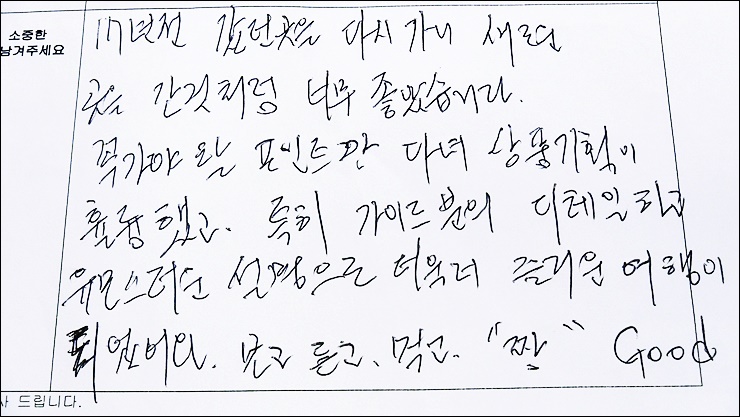 소중한
남겨주세요
17년전 갔던곳을 다시가니 새로운
곳을 간것처럼 너무 좋았습니다.
꼭가야 할 포인트만 다녀 상품기획이
훌륭했고. 특히 가이드분의 디테일하고
유머스러운 설명으로 더욱더 즐거운 여행이
되었어요. 보고 듣고. 먹고. "짱" Good
사 드립니다.